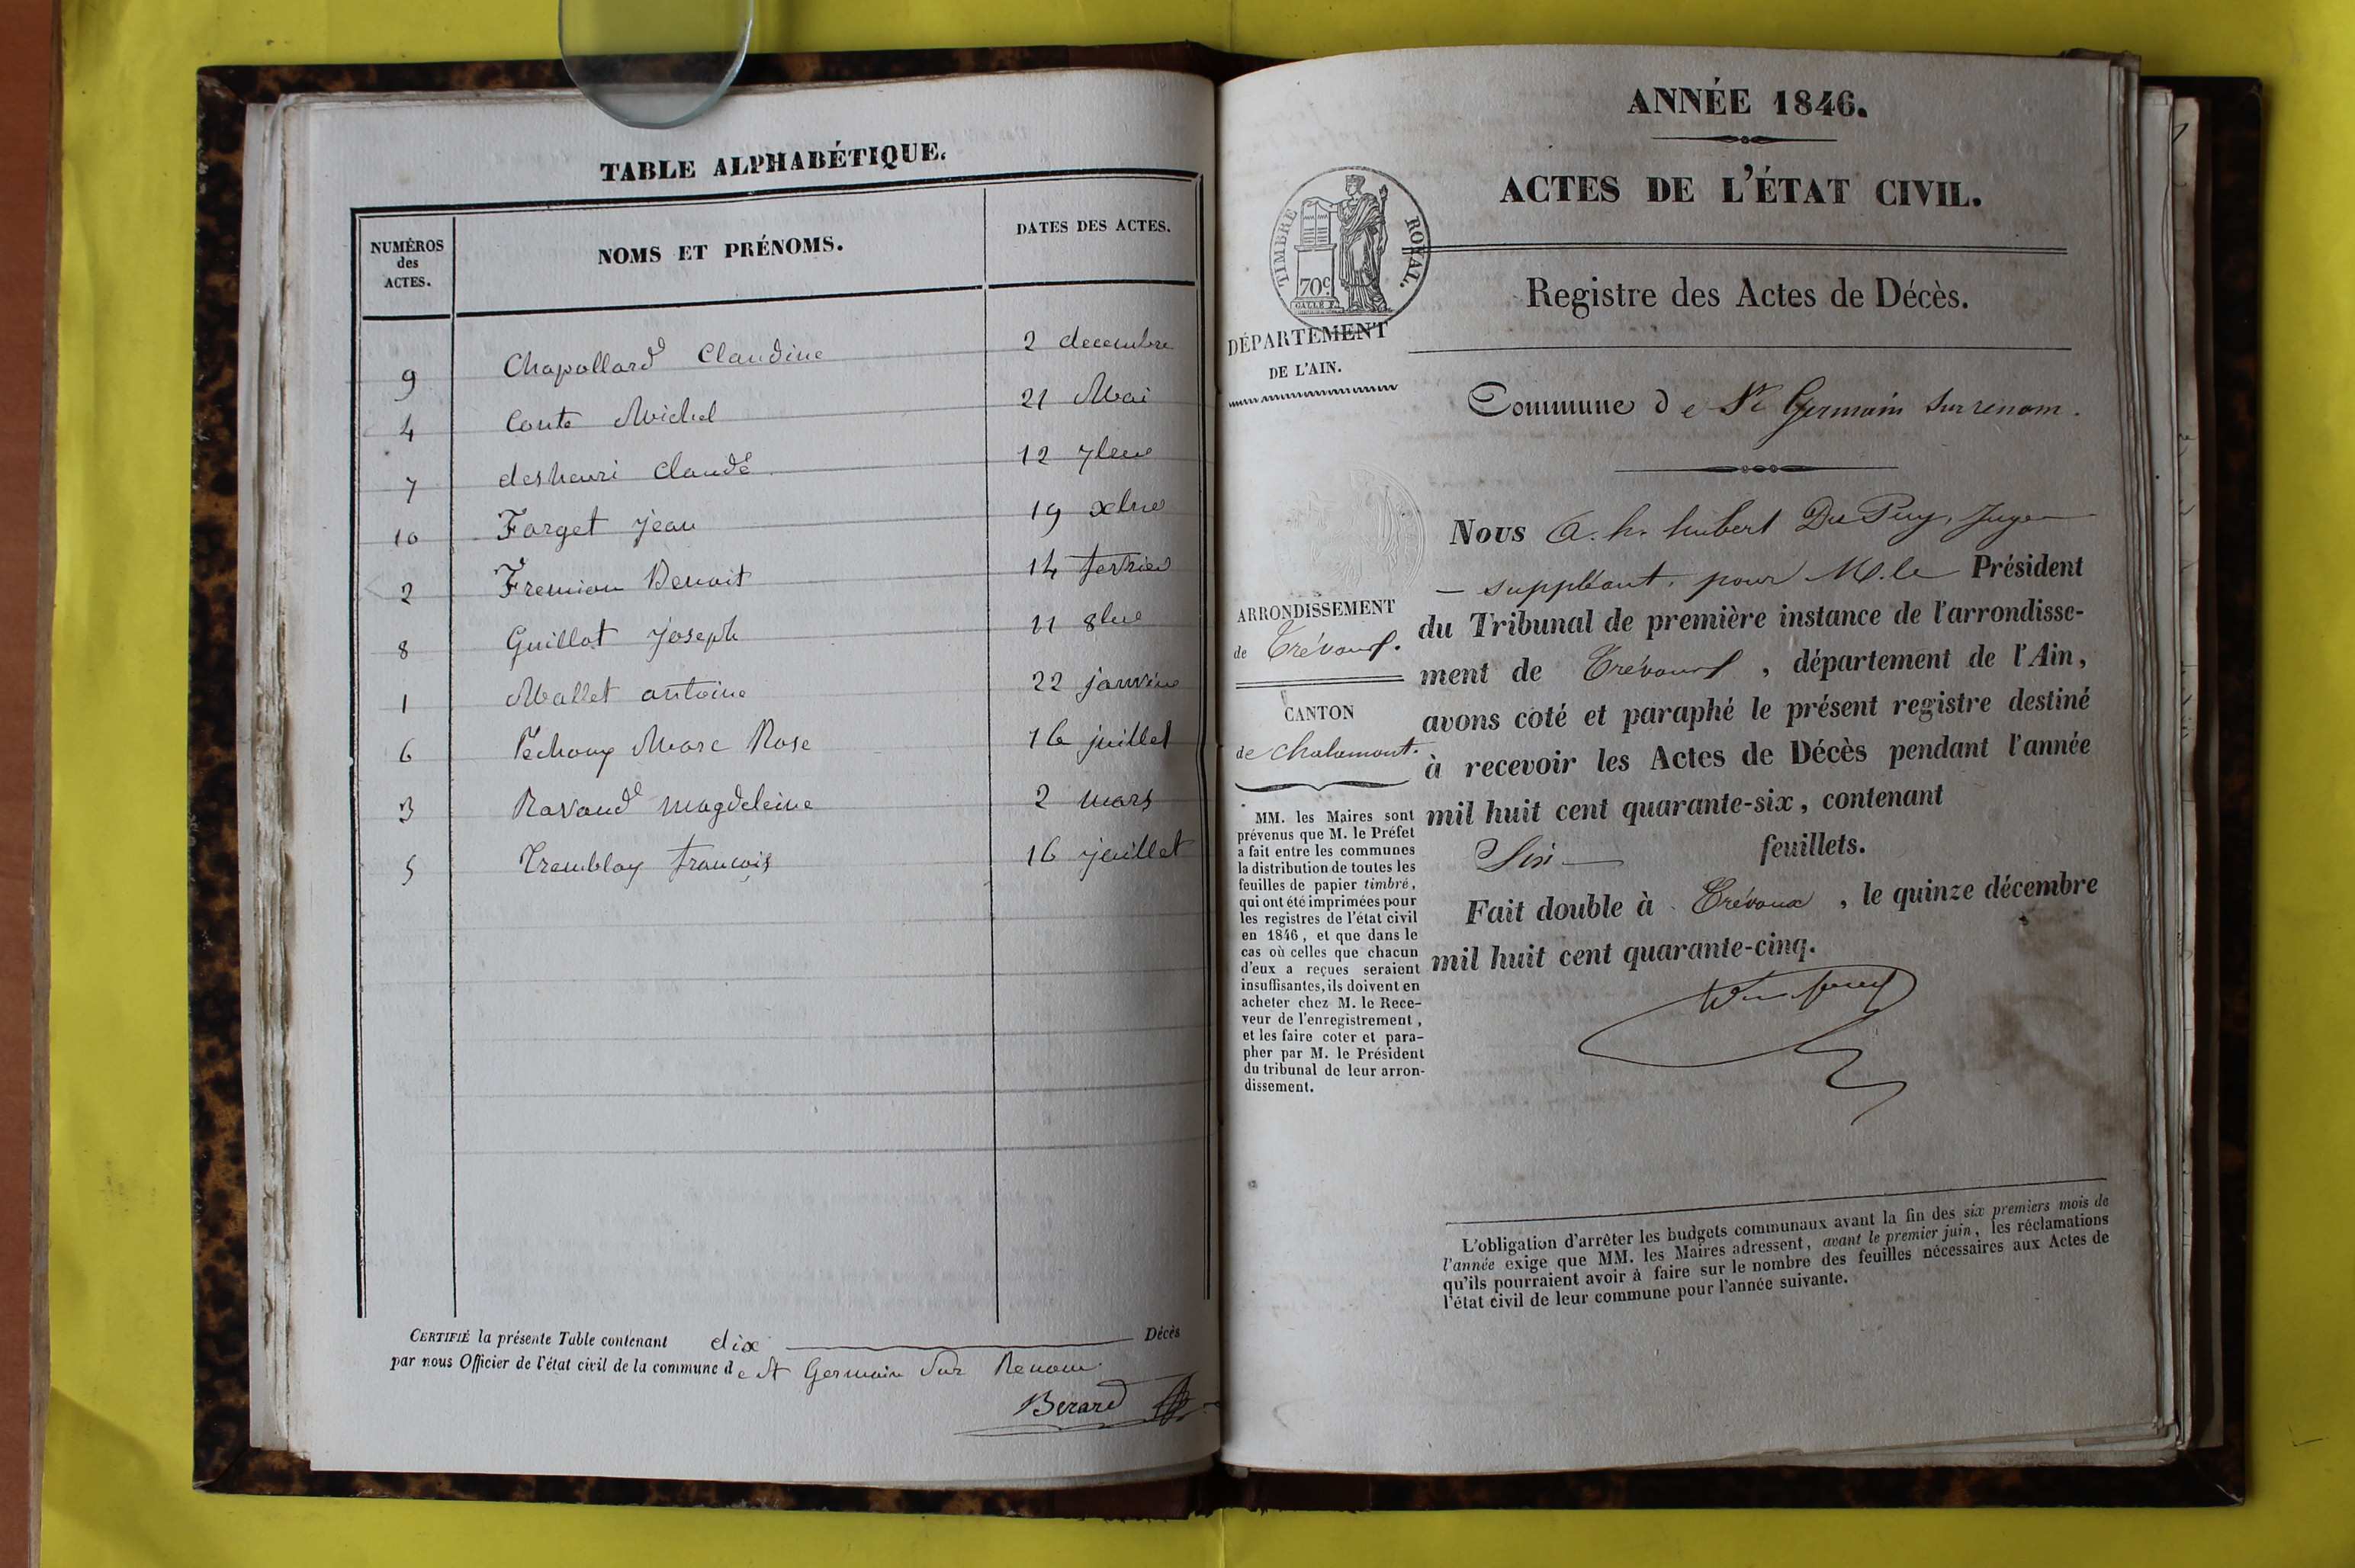 TABLE ALPHABÉTIQUE.
NUMÉROS
des
ACTES.
NOMS ET PRÉNOMS.
DATES DES ACTES.
9 Chapollard Claudine 2 decembre
4 Conte Michel 21 Mai
7 deshenri Claude 12 7bre
10 Forget Jean 19 xbre
2 Fremion Benoit 14 fevrier
8 Guillot Joseph 11 8bre
1 Mallet antoine 22 janvier
6 Péchoux Marc Rose 16 juillet
3 Ravaud magdeleine 2 mars
5 Tremblay francois 16 juillet
CERTIFIÉ la présente Table contenant dix Décès
par nous Officier de l'état civil de la commune de St Germain Sur Renom.
Berard
ANNÉE 1846.
ACTES DE L'ÉTAT CIVIL.
TIMBRE ROYAL.
70c
Registre des Actes de Décès.
DÉPARTEMENT
DE L'AIN.
Commune de St Germain sur renom.
ARRONDISSEMENT
de Trévoux.
CANTON
de Chalamont.
MM. les Maires sont
prévenus que M. le Préfet
a fait entre les communes
la distribution de toutes les
feuilles de papier timbré,
qui ont été imprimées pour
les registres de l'état civil
en 1846, et que dans le
cas où celles que chacun
d'eux a reçues seraient
insuffisantes, ils doivent en
acheter chez M. le Rece-
veur de l'enregistrement,
et les faire coter et para-
pher par M. le Président
du tribunal de leur arron-
dissement.
Nous A. h. hubert Du Puy, Juge
suppléant, pour M. le Président
du Tribunal de première instance de l'arrondisse-
ment de Trévoux, département de l'Ain,
avons coté et paraphé le présent registre destiné
à recevoir les Actes de Décès pendant l'année
mil huit cent quarante-six, contenant
Six feuillets.
Fait double à Trévoux, le quinze décembre
mil huit cent quarante-cinq.
L'obligation d'arrêter les budgets communaux avant la fin des six premiers mois de
l'année exige que MM. les Maires adressent, avant le premier juin, les réclamations
qu'ils pourraient avoir à faire sur le nombre des feuilles nécessaires aux Actes de
l'état civil de leur commune pour l'année suivante.